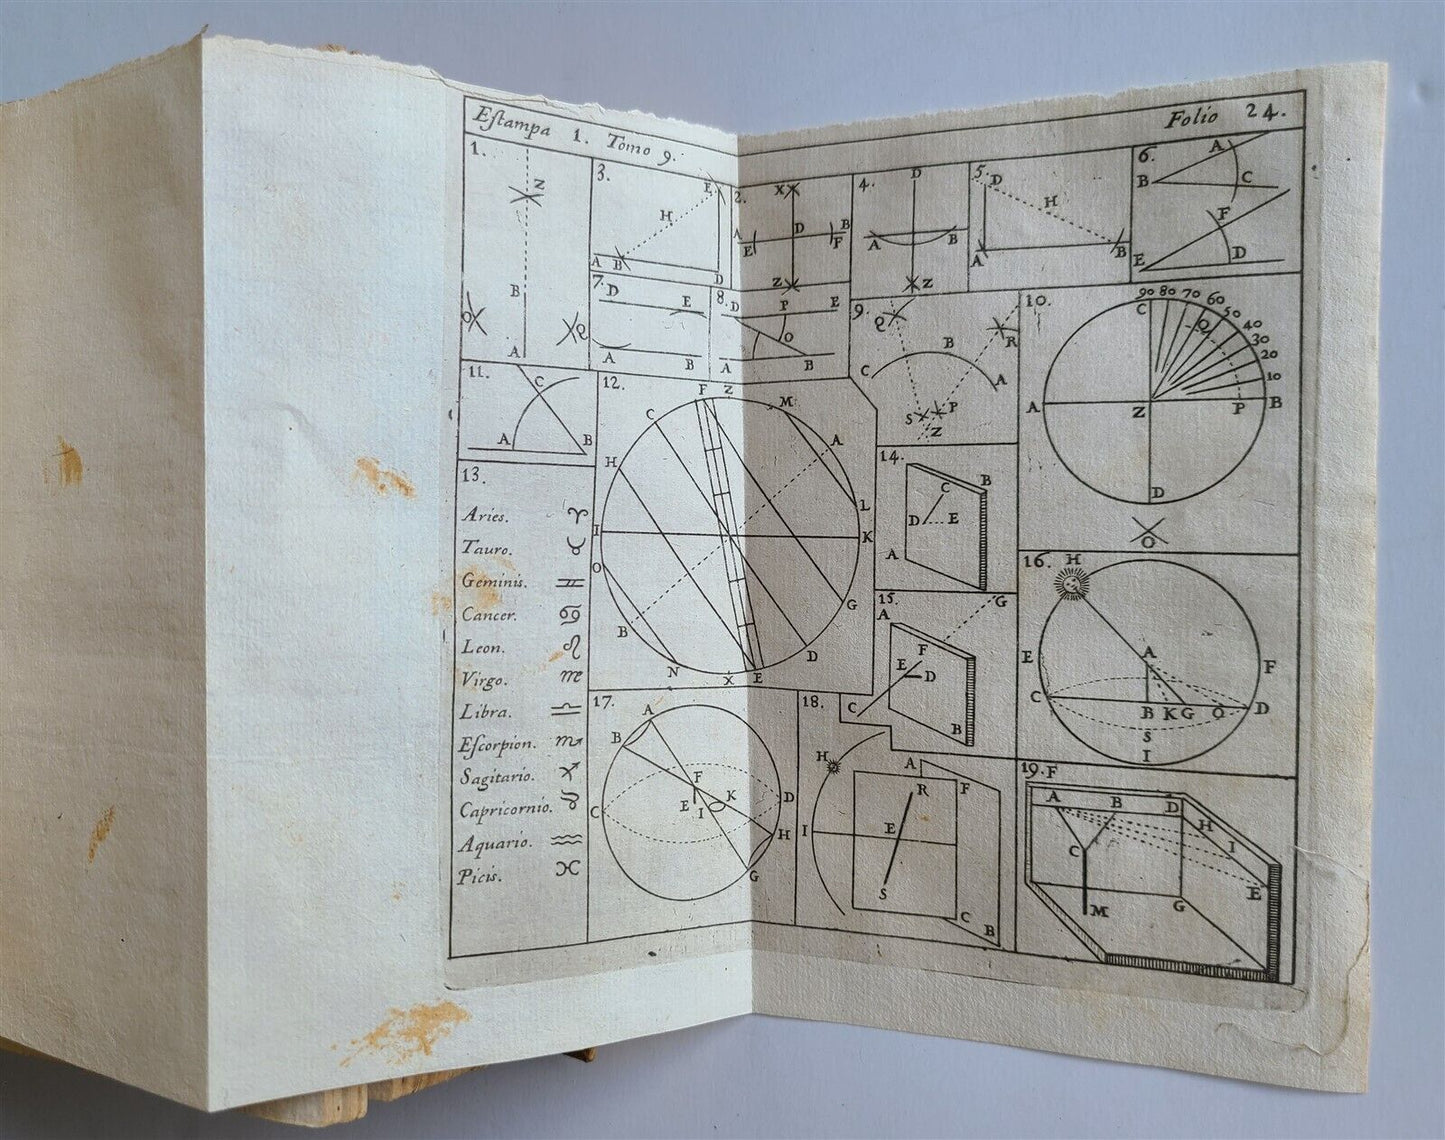 Eſtampa 1. Tomo 9. Folio 24.
1.
Z
B
Q
A
3.
E
H
A B
D
2.
X
A
E
D
B
F
Z
4.
D
A
B
Z
5.
D
H
A
B
6.
A
B
C
F
E
D
7.
D
E
A
B
8.
D
P
E
O
A
B
9.
Q
B
R
C
A
S
P
Z
10.
90 80 70 60 50 40 30 20 10
C
Q
A
Z
P
B
D
O
11.
C
A
B
12.
F Z
M
C
A
H
L
I
K
O
G
B
D
N
X E
13.
Aries. ♈
Tauro. ♉
Geminis. ♊
Cancer. ♋
Leon. ♌
Virgo. ♍
Libra. ♎
Eſcorpion. ♏
Sagitario. ♐
Capricornio. ♑
Aquario. ♒
Picis. ♓
14.
C
B
D
E
A
15.
G
A
F
E
D
C
B
16.
H
A
E
F
C
B K G O D
S
I
17.
A
B
F
K
D
C
E I
H
G
18.
H
A
R
F
I
E
S
C
B
19. F
A
B
D
H
I
C
E
M
G